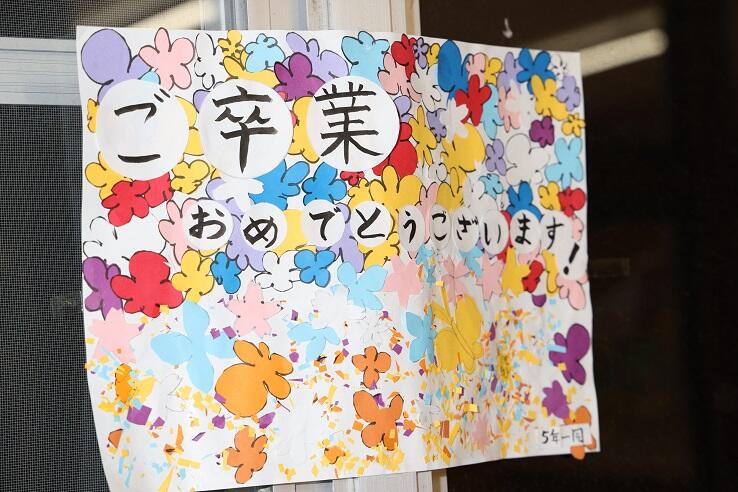 ご卒業
おめでとうございます!
5年一同